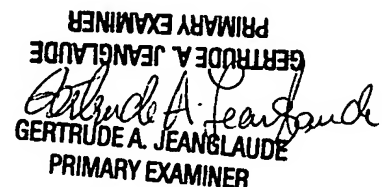 PRIMARY EXAMINER
GERTRUDE A. JEANGLAUDE
Gertrude A. Jeanglaude
GERTRUDE A. JEANGLAUDE
PRIMARY EXAMINER